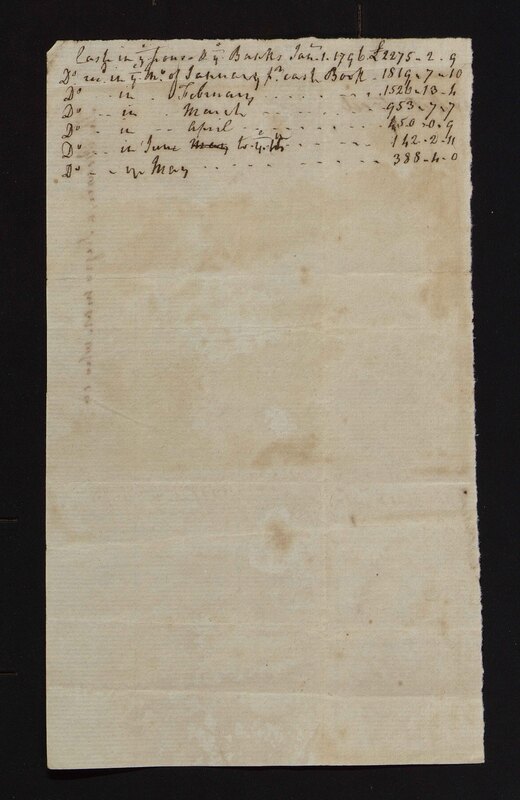 Cash in ye house & ye Banks Jany. 1. 1796 £2275 - 2 - 9
Do rec. in ye Mo. of January pr. cash Book - 1819 - 7 - 10
Do .. in .. February - - - - - - 1526 - 13 - 4
Do .. in .. March - - - - - - 953 - 7 - 7
Do .. in .. April - - - - - - 450 - 0 - 9
Do .. in June May to ye - - - - - 142 - 2 - 11
Do .. in May - - - - - - 388 - 4 - 0